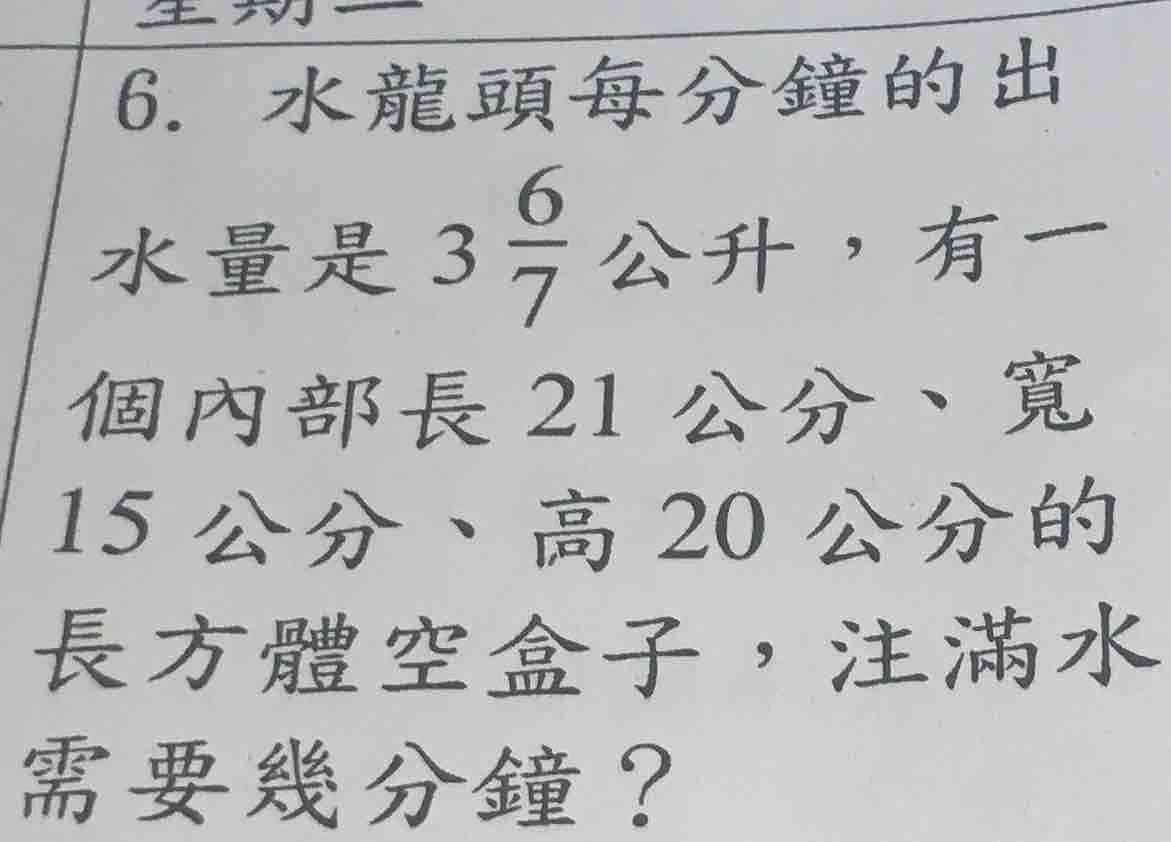 6. 水龍頭每分鐘的出
水量是 3 6/7 公升，有一
個內部長 21 公分、寬
15 公分、高 20 公分的
長方體空盒子，注滿水
需要幾分鐘？